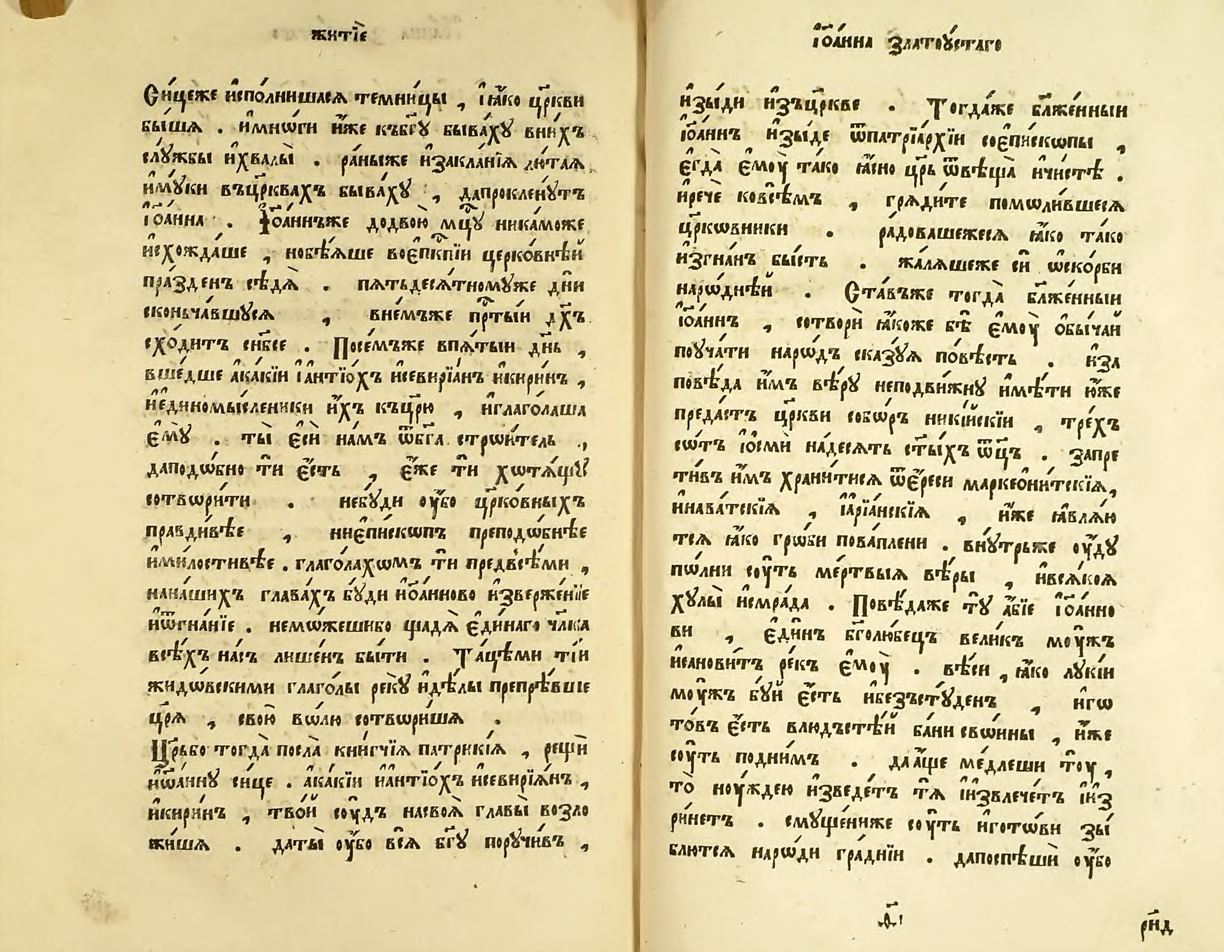 житїе
Сицеже исполнишася темницы , ꙗко црⷪ҇кви
быша . имнѡги иже къбг҃ꋋ бывахꋋ вних̾
слꋋжбы ихвалы . раныже изаклания лютая
имꋋки въцр҃квахъ бывахꋋ , дапрокленꋋтъ
їѡанна . Їѡаннъже додвою мцⷭ҇ꋋ никаможе
исхождаше , нобѣяше воепⷭ҇кпїи церковнѣй
празденъ сѣдѧ . пѧтьдесѧтномꋋже дн҃и
сконьчавшꋋся , внемъже прⷭ҇тыи дх҃ъ
сходитъ снб҃се . Посемъже впѧтыи дн҃ь ,
вшедше акакїи їантїохъ исевирїанъ икиринъ ,
иединомысленики ихъ къцр҃ю , иглаголаша
емꋋ . ты еси намъ ѿбг҃а строитель ,
даподѡбно ти есть , еже ти хотѧщꋋ
сотворити . небꋋди оубо црⷪ҇ковныхъ
правдивѣе , ниепископъ преподѡбнѣе
имилостивѣе . глаголахомъ ти предвсѣми ,
нанашихъ главахъ бꋋди иоанново извержение
иѿгнанїе . неможешибо щадѧ единаго чл҃ка
всѣхъ насъ лишенъ быти . Тацѣми тїи
жидовскими глаголы рекꋋ идѣлы препрѣвше
цр҃ѧ , свою волю сотвориша .
Цр҃ьбо тогда посла книгчїѧ патрикїѧ , рещи
иѡаннꋋ сице . акакїи иантїохъ исевирїянъ ,
икиринъ , твой соудъ насвоѧ главы возло
жиша . даты оубо всѧ бг҃ꋋ порꋋчивъ ,
їѡанна златоустаго
изыди изъцр҃кве . Тогдаже бл҃женныи
їѡаннъ изыде ѿпатрїархїи соепископы ,
егда емоу тако ꙗсно цр҃ь ѿвѣща ичистѣ .
ирече ковсѣмъ , грѧдите помолившеся
цр҃ковники . радовашежеся ꙗко тако
изгнанъ бысть . жалѧшеже си оскорби
народнѣй . Ставъже тогда бл҃женныи
їѡаннъ , сотвори ꙗкоже бѣ емоу обычай
поучати народъ сказꋋѧ повѣсть . иза
повѣда имъ вѣрꋋ неподвижнꋋ имѣти юже
предастъ цр҃кви соборъ никїйскїи , трехъ
сотъ їосми надесѧть ст҃ыхъ ѡц҃ъ . запре
тивъ имъ хранитися ѿереси маркеонитскїѧ,
инаватскїѧ , їарїанскїѧ , иже ꙗвлѧю
тся ꙗко гроби поваплени . внꋋтрьже оудꋋ
полни соуть мертвыѧ вѣры , ивсѧкоѧ
хꋋлы исмрада . Повѣдаже тꋋ абїе їоанно
ви , единъ бг҃олюбецъ великъ моужъ
исановитъ рекъ емоу . вѣси , ꙗко лꋋкїи
моужъ бꋋй есть ибезъстꋋденъ , иго
товъ есть влюдьстѣй бани своини , иже
соуть поднимъ . дааще медлеши тоу ,
то ноуждею изведетъ тѧ їизвлечетъ їиз
ринетъ . смꋋщениже соуть иготови зы
блются народи граднїи . дапоспѣши оубо
рн҃д